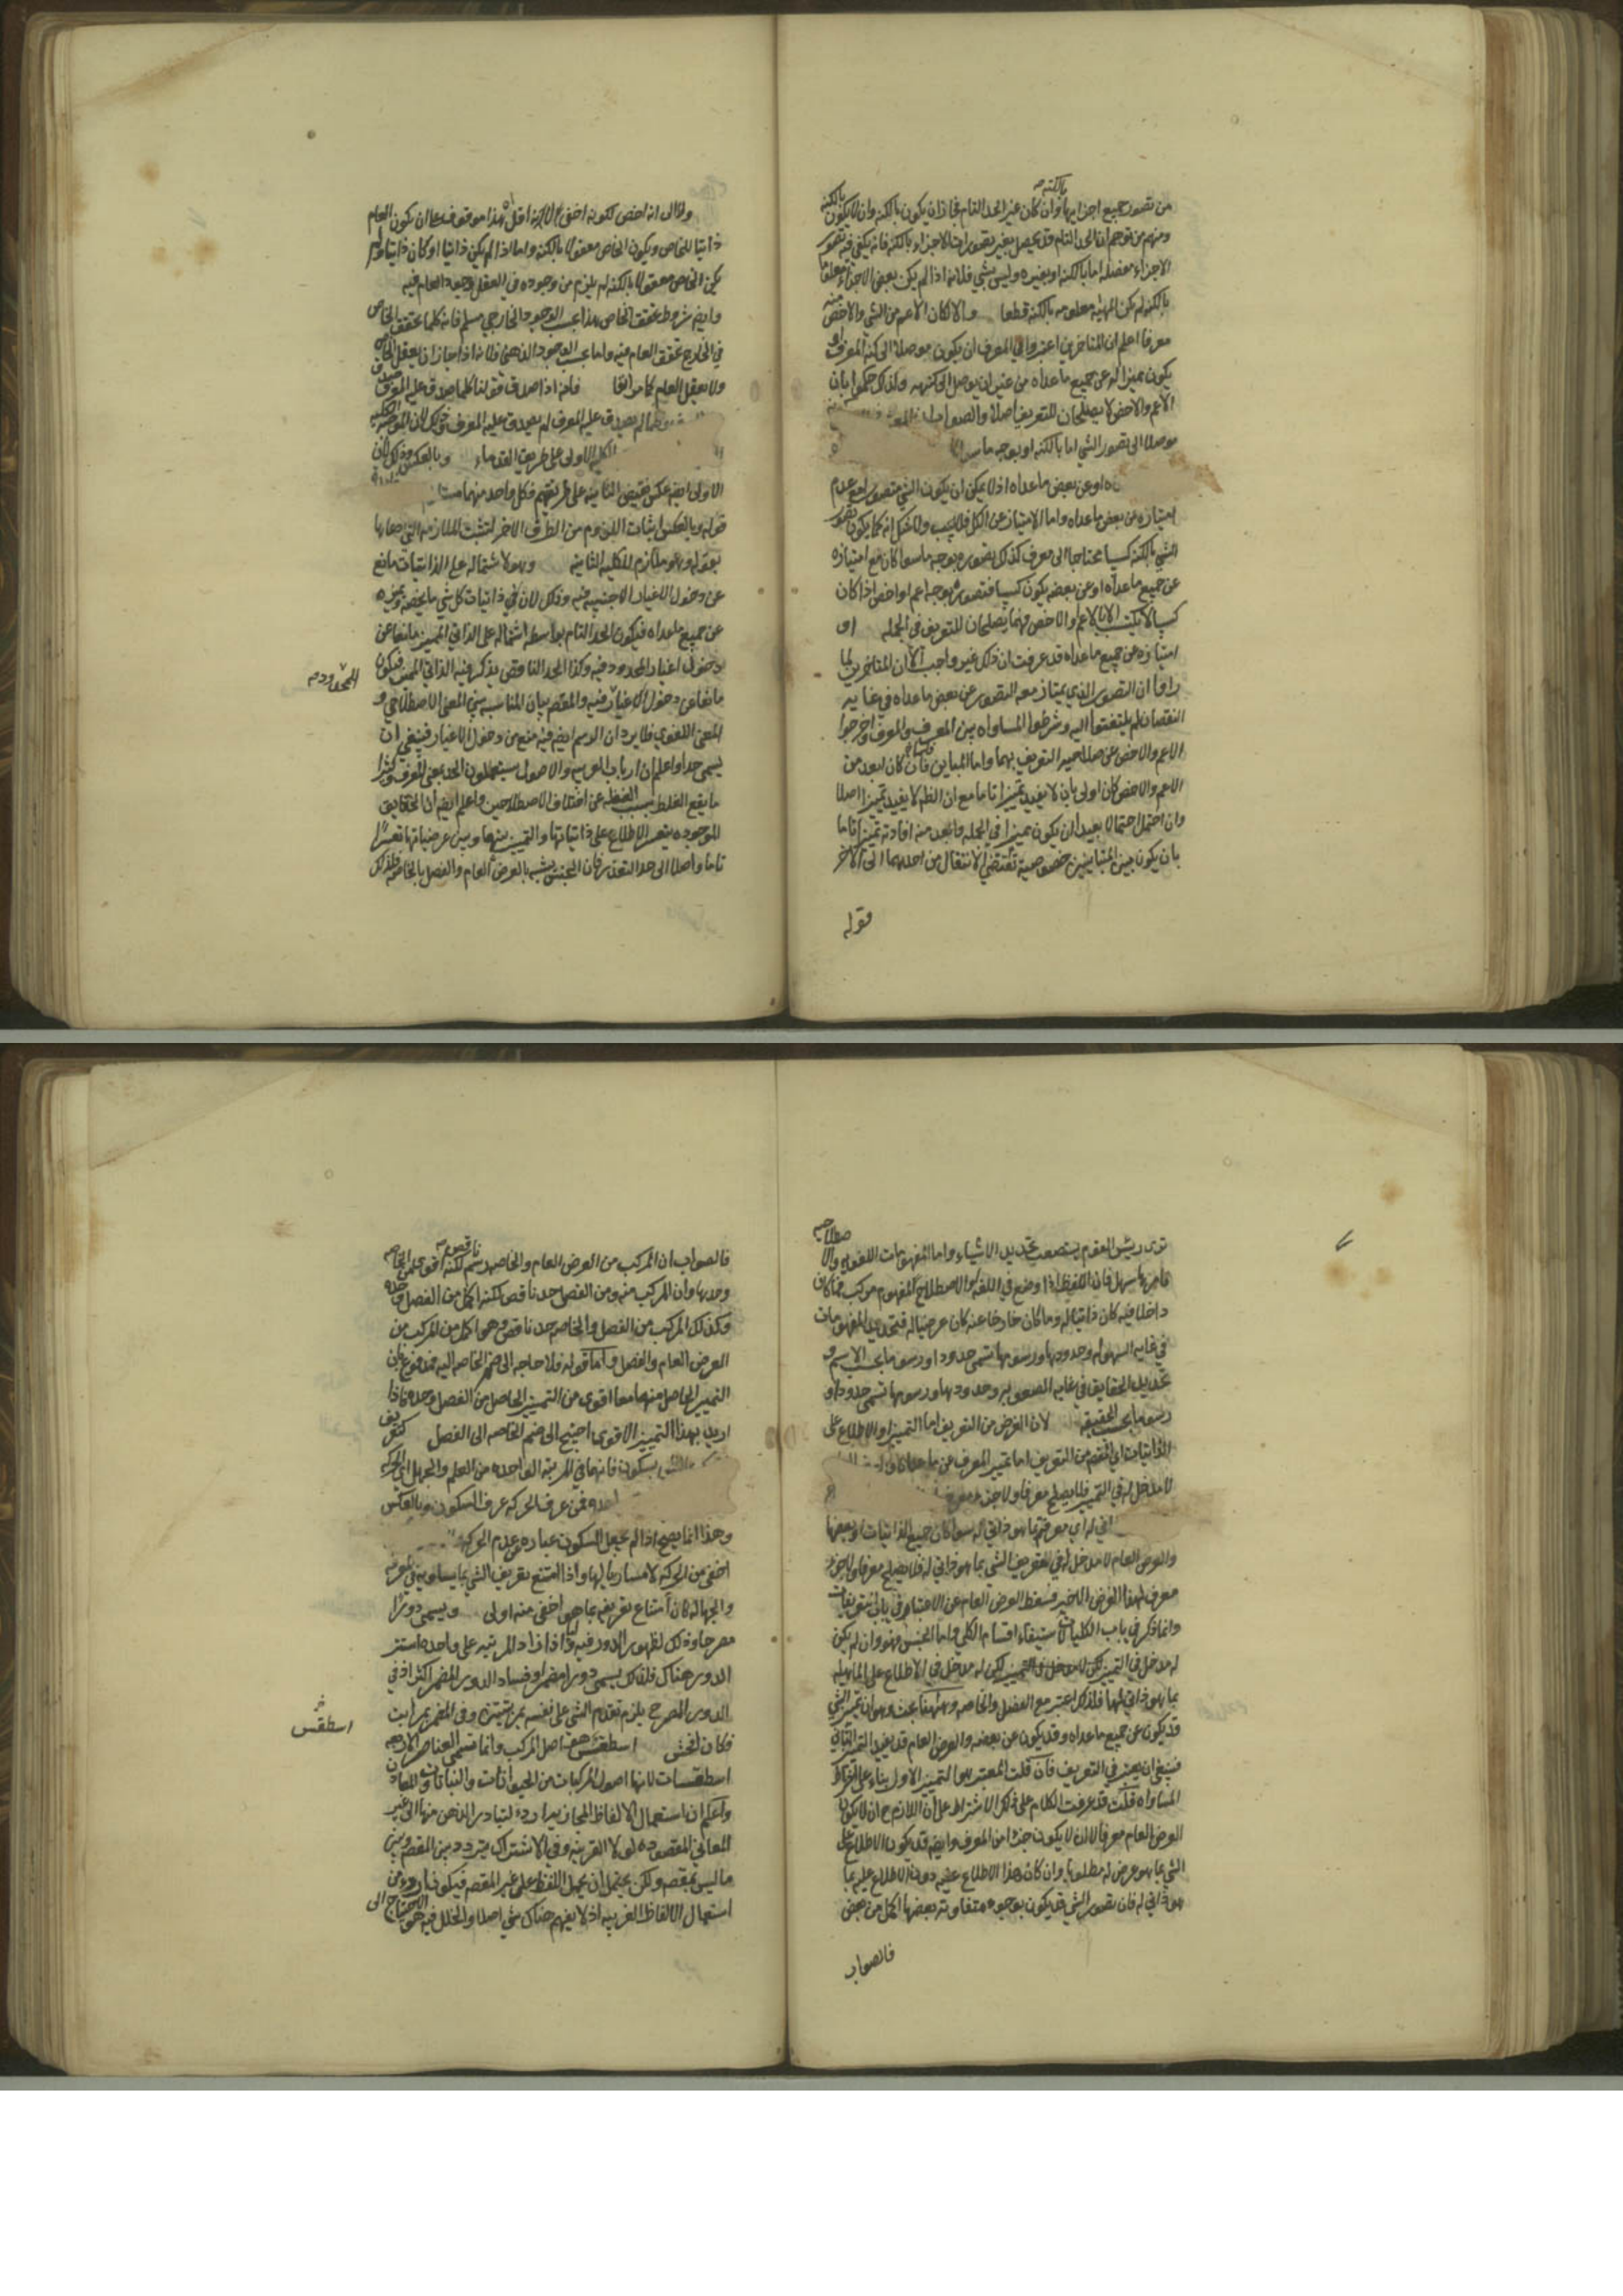 من تصور جميع اجزائها وان كان غير الحد التام فجاز ان يكون بالكنه وان لا يكون بالكنه
ومنهم من توهم ان الحد التام قد يحصل بغير تصورات الاجزاء بالكنه فانه يكفي فيه تصور
الاجزاء مفصلة اما بالكنه او بغيره وليس بشي فلانه اذا لم يكن بعض الاجزاء معلوما
بالكنه لم يكن المهية معلومه بالكنه قطعا والا لكان الاعم من الشي والاخص منه
معرفا اعلم ان المتاخرين اعتبروا في المعرف ان يكون موصلا الى كنه المعرف او
يكون مميزا له عن جميع ما عداه من غير ان يوصل الى كنهه ولذلك حكموا بان
الاعم والاخص لا يصلحان للتعريف اصلا والصواب ان المعرف
موصلا الى تصور الشي اما بالكنه او بوجه ما سوا
او عن بعض ما عداه اذ لا يمكن ان يكون الشي متصورا مع عدم
امتيازه عن بعض ما عداه واما الامتياز عن الكل فلا يجب ولا شك انه كما يكون تصور
الشي بالكنه كسبيا محتاجا الى معرف كذلك تصوره بوجه ما سوا كان مع امتيازه
عن جميع ما عداه او عن بعضه يكون كسبيا فتصوره بوجه اعم او اخص اذا كان
كسبيا لا يكتسب الا بالاعم والاخص فهما يصلحان للتعريف في الجمله او
امتيازه عن جميع ما عداه قد عرفت ان ذلك غير واجب الا ان المتاخرين لما
راوا ان التصور الذي يمتاز معه المتصور عن بعض ما عداه في غايه
النقصان لم يلتفتوا اليه وشرطوا المساواه بين المعرف والمعرف واخرجوا
الاعم والاخص عن صلاحيه التعريف بهما واما المباين فانه لما كان ابعد من
الاعم والاخص كان اولى بان لا يفيد تميزا تاما مع ان الظ انه لا يفيد تميزا اصلا
وان احتمل احتمالا بعيدا ان يكون مميزا في الجمله وابعد منه افادته تميزا تاما
بان يكون بين المتباينين خصوصية تقتضي الانتقال من احدهما الى الاخر
قوله
ولا الى انه اخص لكونه اخفى لانه اقل هذا موقوف على ان يكون العام
ذاتيا للخاص ويكون الخاص معقولا بالكنه واما اذا لم يكن ذاتيا او كان ذاتيا ولم
يكن الخاص معقولا بالكنه لم يلزم من وجوده في العقل وجود العام فيه
وايض شروط تحقق الخاص هذا بحسب الوجود الخارجي مسلم فانه كلما تحقق الخاص
في الخارج تحقق العام فيه واما بحسب الوجود الذهني فلا لانه اذا جاز ان يعقل الخاص
ولا يعقل العام كما مر انفا فانه اذا صدق قولنا كلما صدق عليه المعرف
وكلما لم يصدق عليه المعرف لم يصدق عليه المعرف
الكليه الاولى على طريق القدماء وبالعكس وذلك لان
الاولى ايض عكس نقيض الثانيه على طريقهم فكل واحد منهما
قوله وبالعكس اثبات اللزوم من الطرف الاخر لتثبت الملازمه التي ادعاها
بقوله وهو ملازم للكليه الثانيه وهو لاشتماله على الذاتيات مانع
عن دخول الاغيار الاجنبيه فيه وذلك لان في ذاتيات كل شي ما يخصه ويميزه
عن جميع ما عداه فيكون الحد التام بواسطه اشتماله على الذاتي المميز مانعا عن
دخول اغيار المحدود فيه وكذا الحد الناقص يذكر فيه الذاتي المميز فيكون
المحدود
مانعا عن دخول الاغيار فيه والمقصود بيان المناسبه بين المعنى الاصطلاحي و
المعنى اللغوي فلا يرد ان الرسم ايض فيه منع من دخول الاغيار فينبغي ان
يسمى حدا واعلم ان ارباب العربيه والاصول يستعملون الحد بمعنى المعرف وكثيرا
ما يقع الغلط بسبب الغفله عن اختلاف الاصطلاحين واعلم ايض ان الحقايق
الموجوده يتعسر الاطلاع على ذاتياتها والتمييز بينها وبين عرضياتها تعسرا
تاما واصلا الى حد التعذر فان الجنس يشتبه بالعرض العام والفصل بالخاصه فلذلك
ترى رييس القوم يستصعب تحديد الاشياء واما المفهومات اللغويه والاصطلاحيه
فامرها سهل فان اللفظ اذا وضع في اللغه او الاصطلاح لمفهوم مركب فما كان
داخلا فيه كان ذاتيا له وما كان خارجا عنه كان عرضيا له فتحديد المفهومات
في غايه السهوله وحدودها ورسومها تسمى حدودا ورسوما بحسب الاسم و
تحديد الحقايق في غايه الصعوبه وحدودها ورسومها تسمى حدودا و
رسوما بحسب الحقيقه لان الغرض من التعريف اما التمييز او الاطلاع على
الذاتيات اي المقصود من التعريف اما تمييز المعرف عن ما عداه
لا مدخل له في التمييز فلا يصلح معرفا ولا جزء معرف
اي معرفته بما هو ذاتي له سوا كان جميع الذاتيات او بعضها
والعرض العام لا مدخل له في تعريف الشي بما هو ذاتي له فلا يصلح معرفا ولا جزء
معرف لهذا الغرض الاخير فسقط العرض العام عن الاعتبار في باب التعريفات
وانما ذكر في باب الكليات لاستيفاء اقسام الكلي واما الجنس فهو وان لم يكن
له مدخل في التمييز لكن له مدخل في الاطلاع على الماهيه
بما هو ذاتي لها فلذلك اعتبر مع الفصل والخاصه وههنا بحث وهو ان تميز الشي
قد يكون عن جميع ما عداه وقد يكون عن بعضه والعرض العام قد يفيد التميز الثاني
فينبغي ان يعتبر في التعريف فان قلت المعتبر هو التميز الاول بناء على اشتراط
المساواه قلت قد عرفت الكلام على ذلك الاشتراط على ان اللازم ح ان لا يكون
العرض العام معرفا لا ان لا يكون جزءا من المعرف وايض قد يكون الاطلاع على
الشي بما هو عرض له مطلوبا وان كان هذا الاطلاع عليه دون الاطلاع عليه بما
هو ذاتي له فان تصور الشي قد يكون بوجوه متفاوته بعضها اكمل من بعض
فالصواب
فالصواب ان المركب من العرض العام والخاصه رسم ناقص لكنه اقوى من الخاصه
وحدها وان المركب منه ومن الفصل حد ناقص لكنه اكمل من الفصل وحده
وكذلك المركب من الفصل والخاصه حد ناقص وهو اكمل من المركب من
العرض العام والفصل واما قوله فلا حاجه الى ضم الخاصه اليه فمدفوع بان
التمييز الحاصل منهما معا اقوى من التمييز الحاصل من الفصل وحده فاذا
اريد بهذا التمييز الاقوى احتيج الى ضم الخاصه الى الفصل كتعريف
بسكون فانهما في المرتبه الواحده من العلم والجهل اي الحركه
فمن عرف الحركه عرف السكون وبالعكس
وهذا انما يصح اذا لم يجعل السكون عباره عن عدم الحركه
اخفى من الحركه لا مساويا لها واذا امتنع تعريف الشي بما يساويه في المعرفه
والجهاله كان امتناع تعريفه بما هو اخفى منه اولى ويسمى دورا
مصرحا وذلك لظهور الدور فيه واذا زاد المرتبه على واحده استتر
الدور هناك فلذلك يسمى دورا مضمرا وفساد الدور المضمر اكثر اذ في
الدور المصرح يلزم تقدم الشي على نفسه بمرتبتين وفي المضمر بمراتب
فكان افحش اسطقس هو اصل المركب وانما تسمى العناصر الاربعه
اسطقس
اسطقسات لانها اصول المركبات من الحيوانات والنباتات والمعادن
واعلم ان استعمال الالفاظ المجازيه اردء لتبادر الذهن منها الى غير
المعاني المقصوده لولا القرينه وفي الاشتراك يتردد بين المقصود وبين
ما ليس بمقصود ولكن يحتمل ان يحمل اللفظ على غير المقصود فيكون اردء من
استعمال الالفاظ الغريبه اذ لا يفهم هناك شي اصلا والخلل فيه هو الاحتياج الى